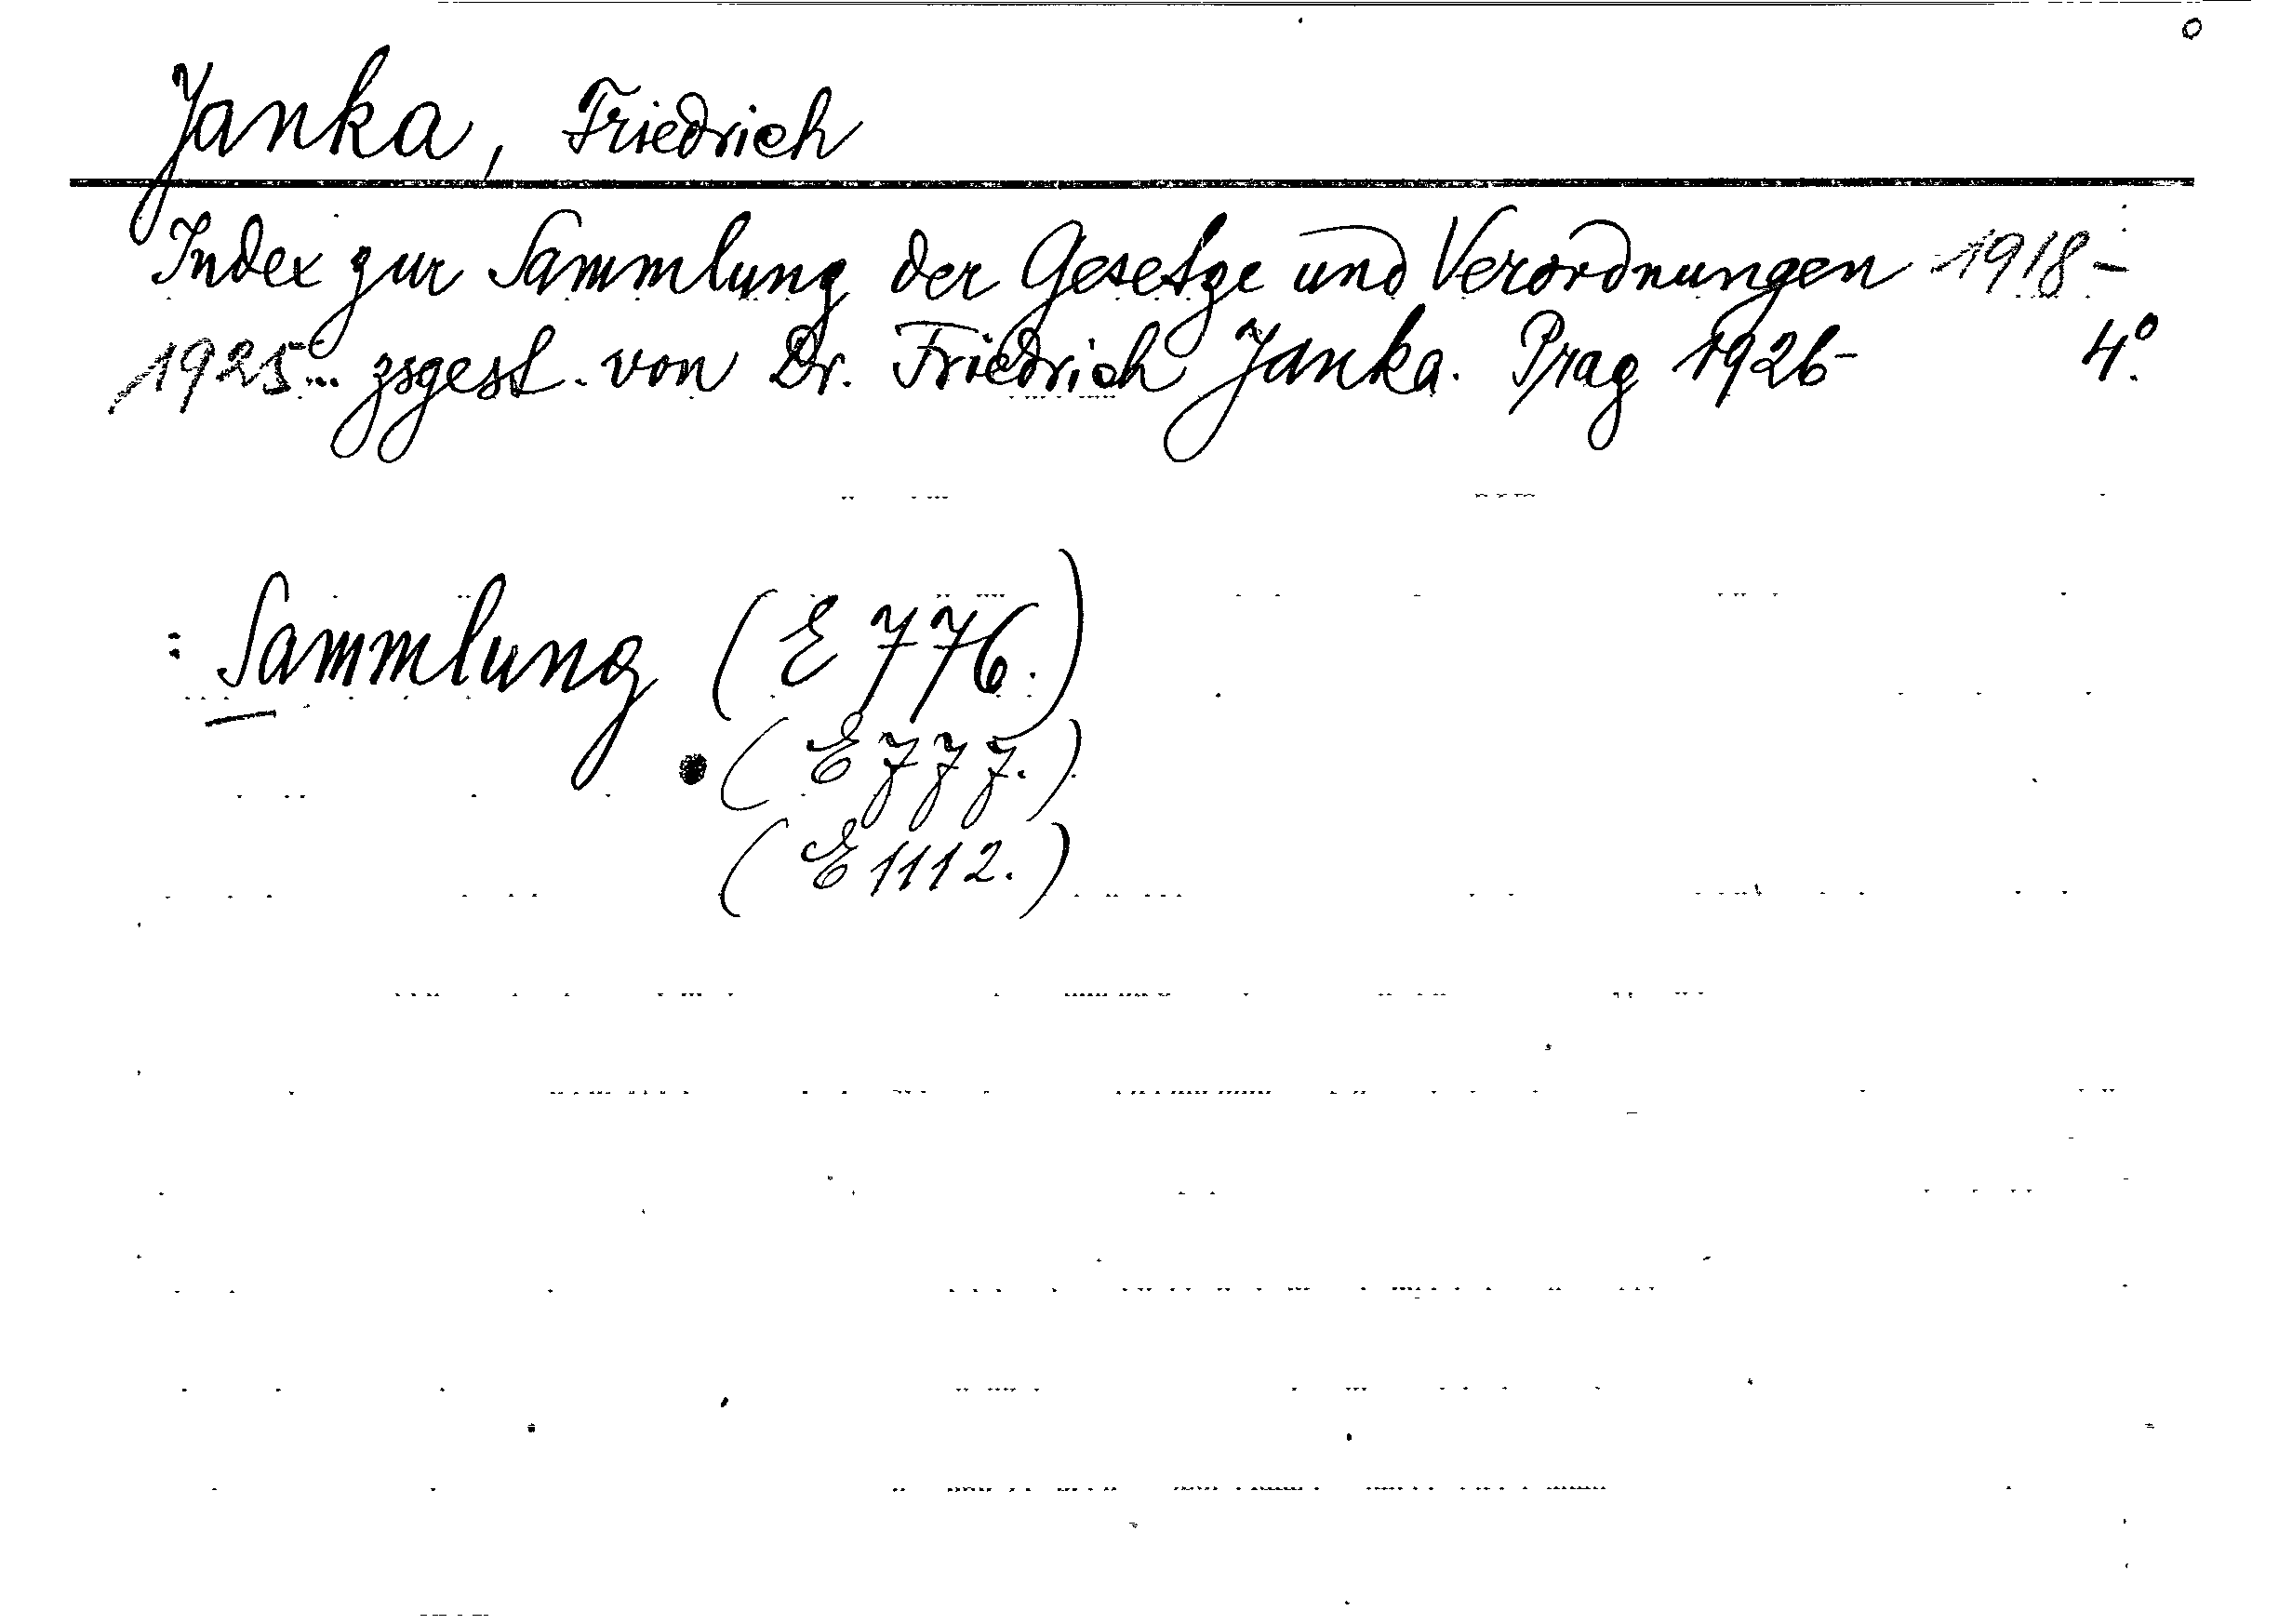 Janka, Friedrich
Index zur Sammlung der Gesetze und Verordnungen 1918-
1925... zsgest. von Dr. Friedrich Janka. Prag 1926- 4°.
: Sammlung (E 776.)
(E 777.)
(E 1112.)